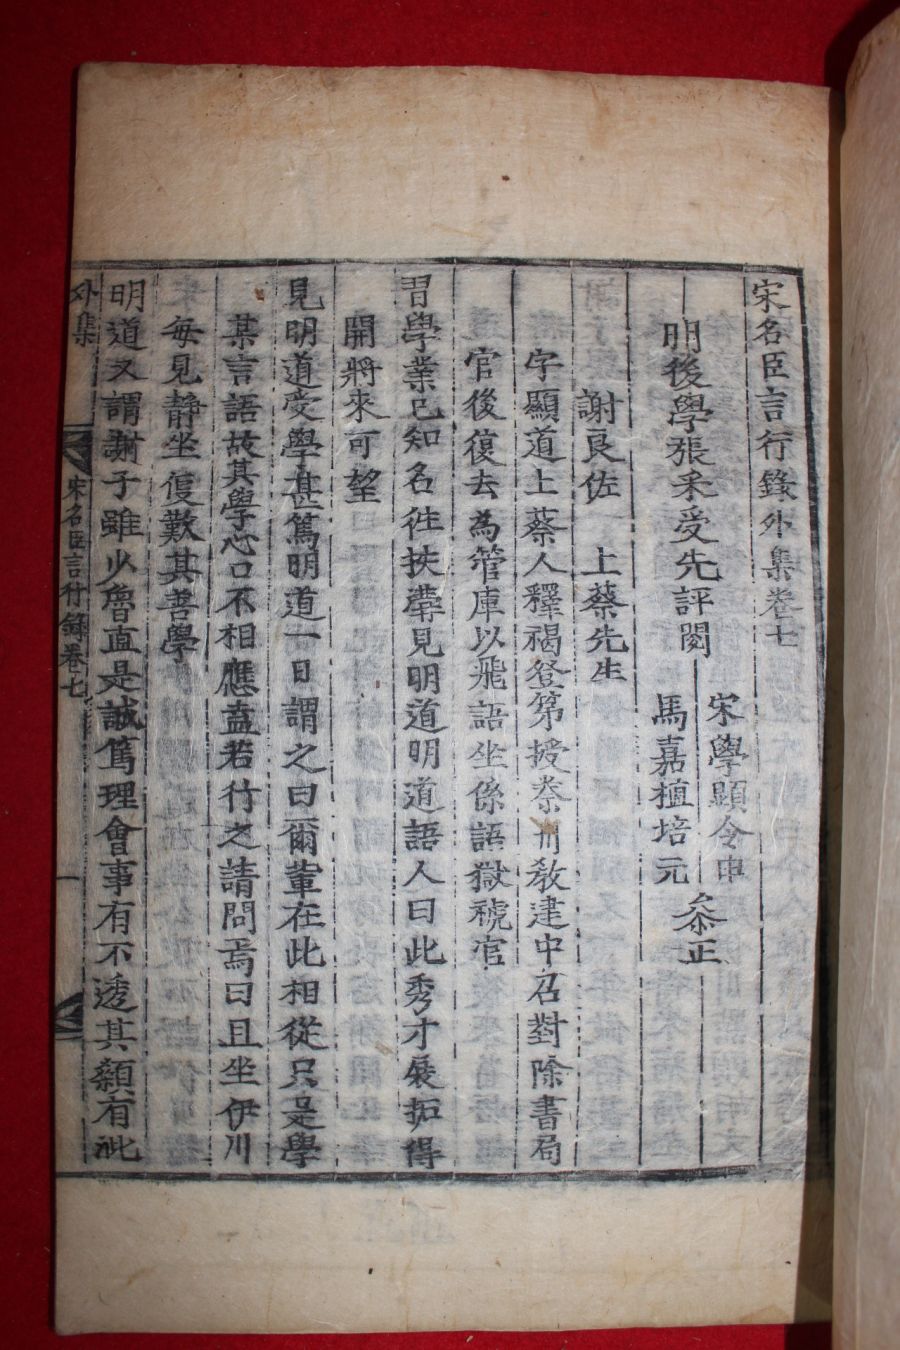 宋名臣言行錄外集卷七
明後學張采受先評閱
宋學顯令申
馬嘉植培元
參正
謝良佐 上蔡先生
字顯道上蔡人釋褐登第授秦州敎建中召對除書局
官後復去為管庫以飛語坐係語獄褫官
胃學業已知名徃扶溝見明道明道語人曰此秀才展拓得
開將來可望
見明道受學甚篤明道一日謂之曰爾輩在此相從只是學
某言語故其學心口不相應盍若行之請問焉曰且坐伊川
每見靜坐便歎其善學
明道又謂謝子雖少魯直是誠篤理會事有不透其顙有泚
外集
宋名臣言行錄卷七
一